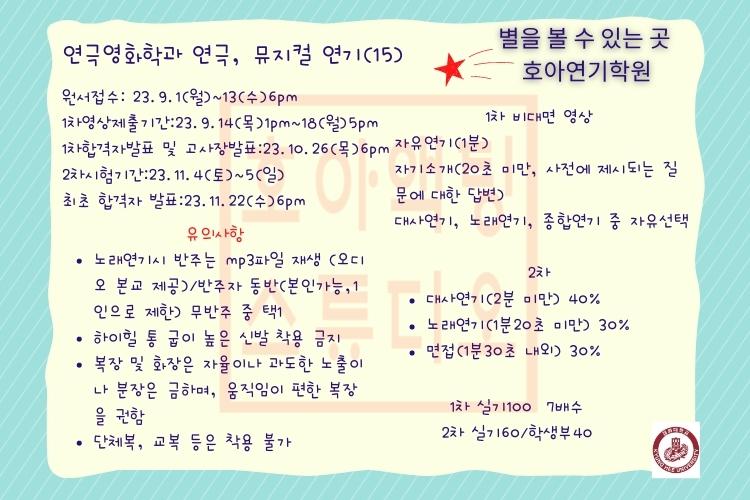 별을 볼 수 있는 곳
호아연기학원
연극영화학과 연극, 뮤지컬 연기(15)
원서접수: 23.9.1(월)~13(수)6pm
1차영상제출기간:23.9.14(목)1pm~18(월)5pm
1차합격자발표 및 고사장발표:23.10.26(목)6pm
2차시험기간:23.11.4(토)~5(일)
최초 합격자 발표:23.11.22(수)6pm
유의사항
• 노래연기시 반주는 mp3파일 재생 (오디
오 본교 제공)/반주자 동반(본인가능,1
인으로 제한) 무반주 중 택1
• 하이힐 통 굽이 높은 신발 착용 금지
• 복장 및 화장은 자율이나 과도한 노출이
나 분장은 금하며, 움직임이 편한 복장
을 권함
• 단체복, 교복 등은 착용 불가
1차 비대면 영상
자유연기(1분)
자기소개(20초 미만, 사전에 제시되는 질
문에 대한 답변)
대사연기, 노래연기, 종합연기 중 자유선택
2차
• 대사연기(2분 미만) 40%
• 노래연기(1분20초 미만) 30%
• 면접(1분30초 내외) 30%
1차 실기100 7배수
2차 실기60/학생부40
호아액팅
스튜디오
KYUNG HEE UNIVERSITY